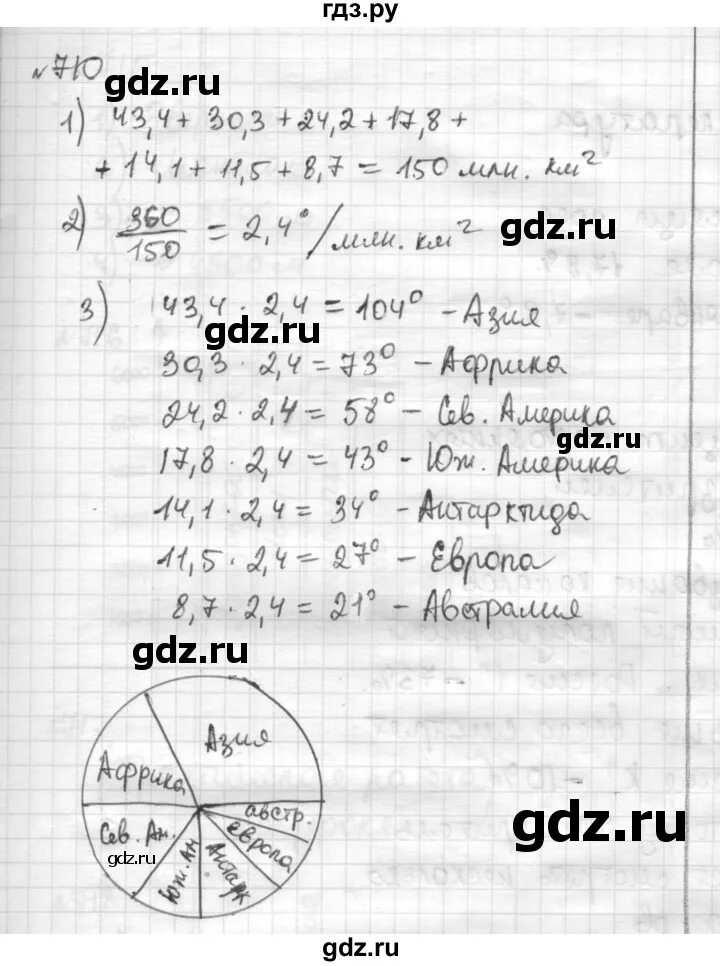 гдз.ру
№710
гдз.ру
1) 43,4 + 30,3 + 24,2 + 17,8 +
+ 14,1 + 11,5 + 8,7 = 150 млн. км²
2) 360/150 = 2,4°/млн. км²
gdz.ru
3) 43,4 · 2,4 = 104° - Азия
gdz.ru
30,3 · 2,4 = 73° - Африка
24,2 · 2,4 = 58° - Сев. Америка
gdz.ru
17,8 · 2,4 = 43° - Юж. Америка
14,1 · 2,4 = 34° - Антарктида
11,5 · 2,4 = 27° - Европа
8,7 · 2,4 = 21° - Австралия
gdz.ru
Азия
Африка
австр.
gdz.ru
Европа
Сев. Ам.
gdz.ru
Юж. Ам
Антарк
gdz.ru